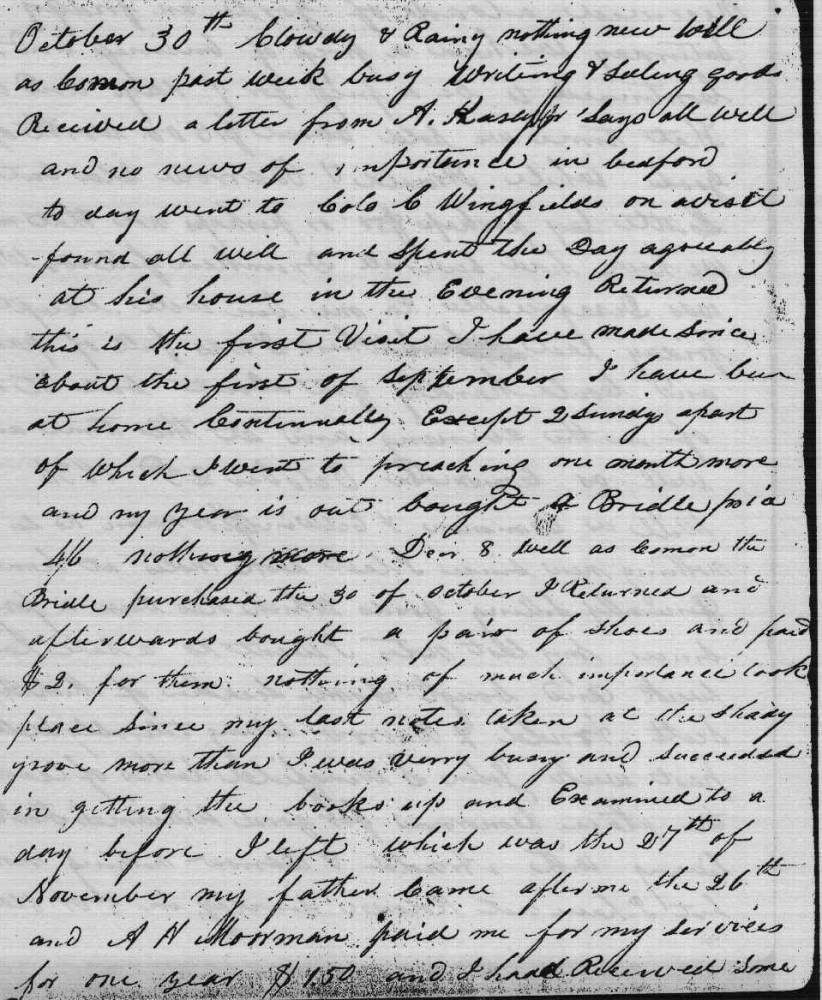 October 30th Clowdy & Rainy nothing new well
as Common past week busy Writing & Saling goods
Received a letter from A. Says all well
and no news of importance in bedford
to day went to Colo C Wingfields on avisit
found all well and Spent the Day agreeably
at his house in the Evening Returned
this is the first Visit I have made since
about the first of September I have been
at home Continually Except 2 Sundys apart
of which I went to preaching one month more
and my year is out bought a Bridle
nothing more Decr 8 well as Comon the
Bridle purchased the 30 of october I Returned and
afterwards bought a pair of shoes and paid
$2. for them nothing of much importance took
place Since my last notes taken at the shady
grove more than I was verry busy and Succeeded
in getting the books up and Examined to a
day before I left which was the 27th of
November my father Came after me the 26th
and A H Moorman paid me for my services
for one year $150 and I had Received Some